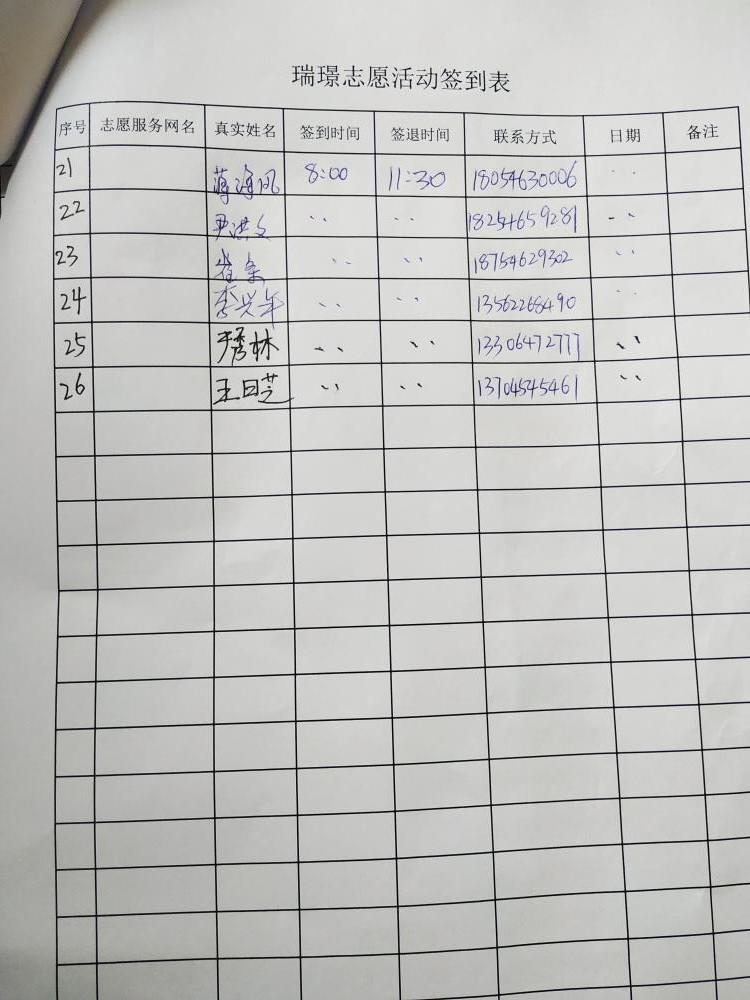 瑞璟志愿活动签到表
序号 志愿服务网名 真实姓名 签到时间 签退时间 联系方式 日期 备注
21 蒋海风 8:00 11:30 18054630006 〃
22 尹洪文 〃 〃 18254659281 〃
23 崔 〃 〃 18754629302 〃
24 李兴年 〃 〃 13562268490 〃
25 秀林 〃 〃 13306472777 〃
26 王日芝 〃 〃 13704545461 〃